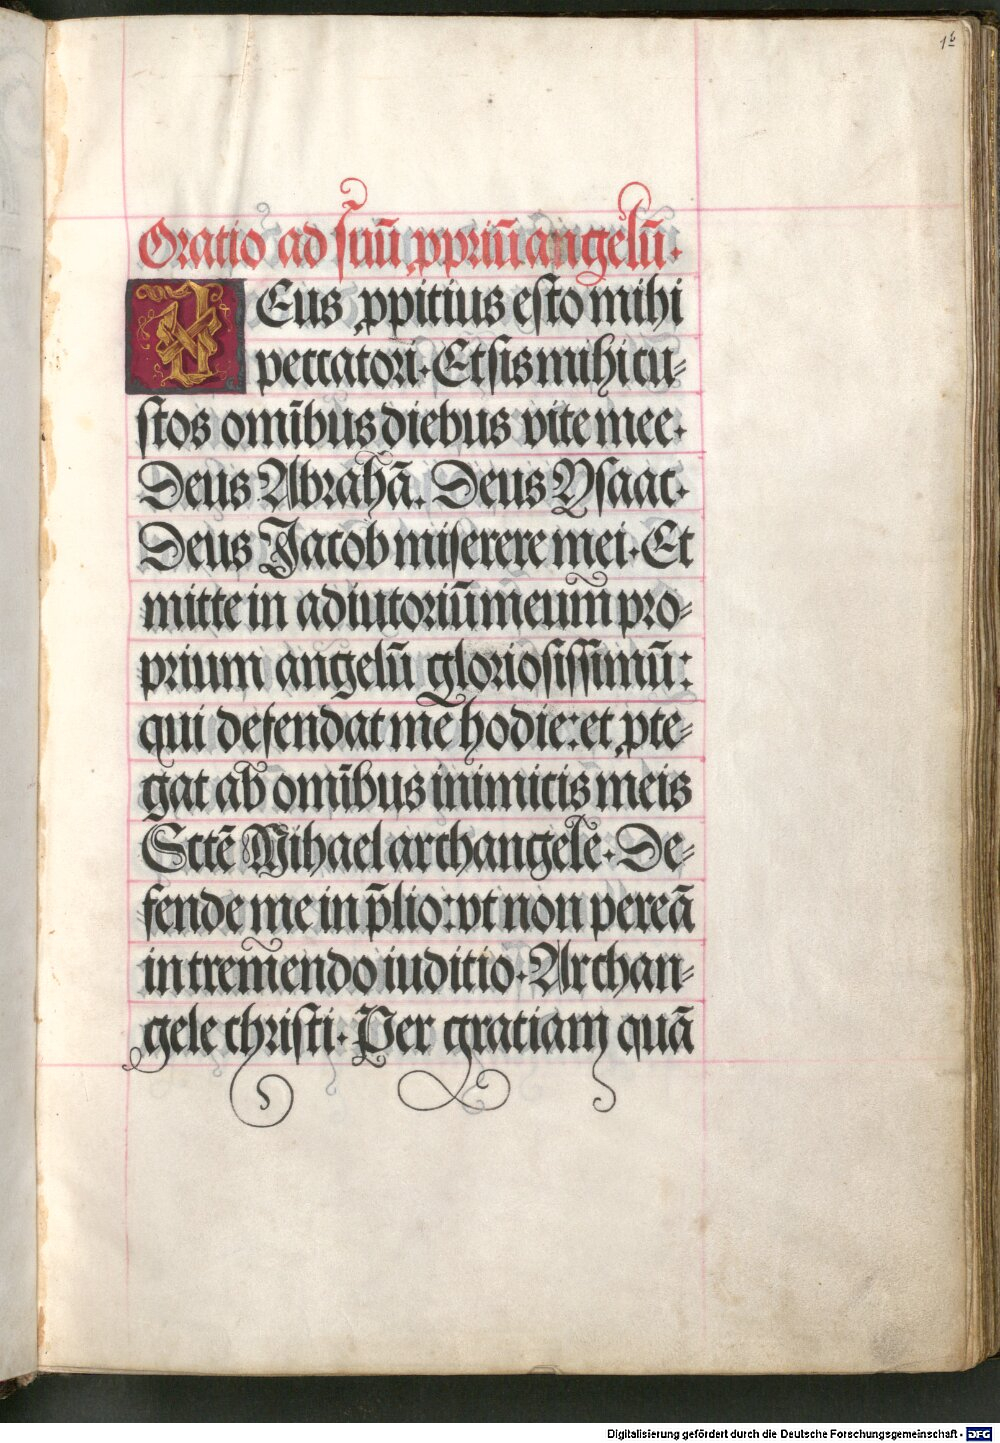 16
Oratio ad suū ꝓpriū angelū.
DEus ꝓpitius esto mihi
peccatori. Et sis mihi cu-
stos om̄ibus diebus vite mee.
Deus Abrahā. Deus Ysaac.
Deus Jacob miserere mei. Et
mitte in adiutoriū meum pro-
prium angelū gloriosissimū:
qui defendat me hodie: et ꝓte-
gat ab om̄ibus inimicis meis
Scte̅ Mihael archangele. De-
fende me in p̄lio: vt non pereā
in tremendo iuditio. Archan-
gele christi. Per gratiam quā
Digitalisierung gefördert durch die Deutsche Forschungsgemeinschaft - DFG